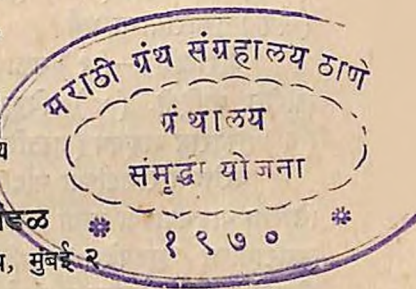 मराठी ग्रंथ संग्रहालय ठाणे
ग्रंथालय
संमृद्धा योजना
१९७०
य
डळ
, मुंबई २